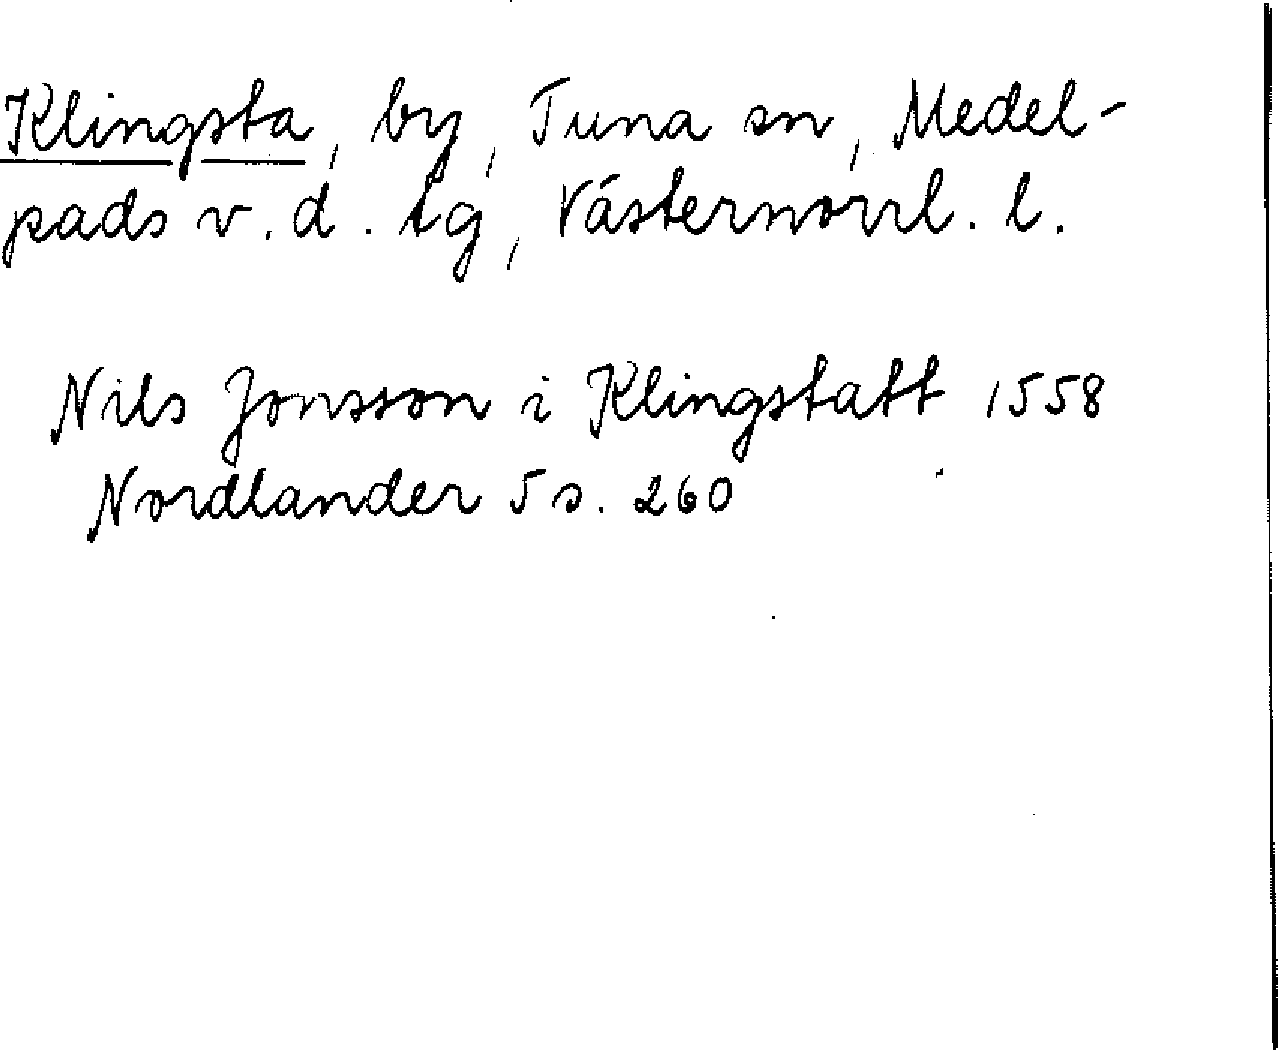 Klingsta, by, Tuna sn, Medel-
pads v. d. tg, Västernorrl. l.
Nils Jonsson i Klingstatt 1558
Nordlander 5 s. 260